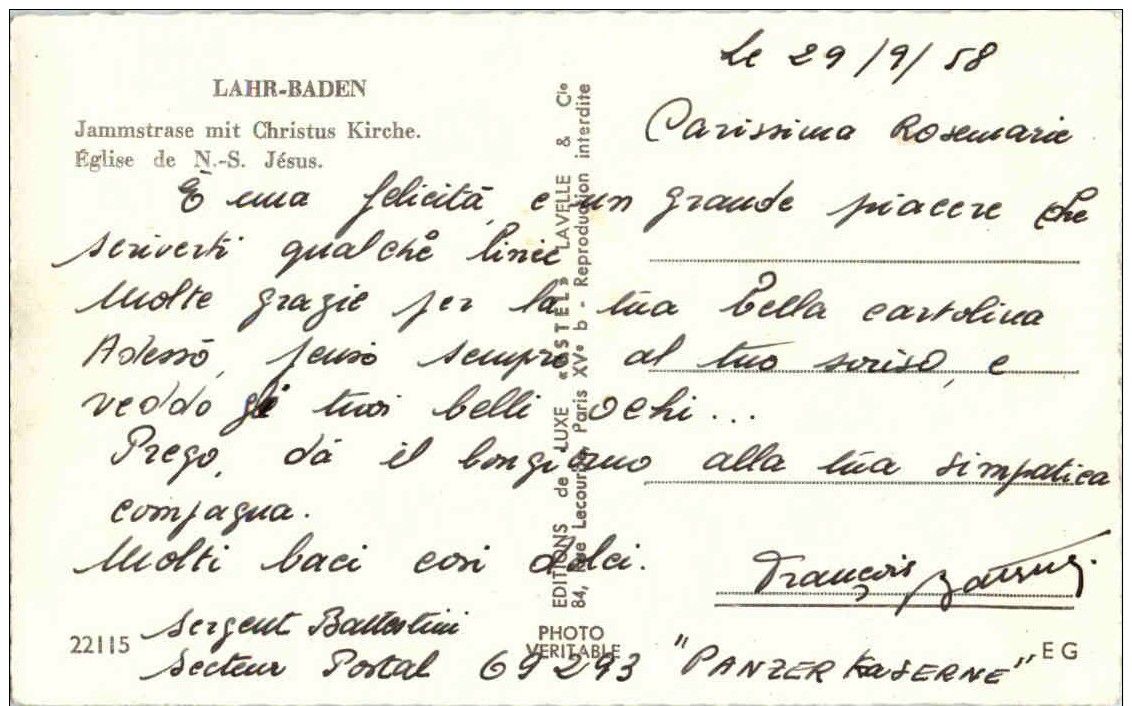 LAHR-BADEN
Jammstrase mit Christus Kirche.
Église de N.-S. Jésus.
Le 29/9/58
Carissima Rosemarie
È una felicità, e un grande piacere che
scriverti qualche linie
Molte grazie per la tua bella cartolina
Adesso, penso sempre al tuo soriso, e
veddo gli tuoi belli ochi...
Prego, dà il bongiorno alla tua simpatica
compagna.
Molti baci cosi dolci.
François Battestini.
Sergent Battestini
Secteur Postal 69293 "PANZER KaSERNE"
22115
EDITIONS de LUXE «ESTEL» LAVELLE & Cie
84, Rue Lecourbe, Paris XVe b - Reproduction interdite
PHOTO
VERITABLE
EG